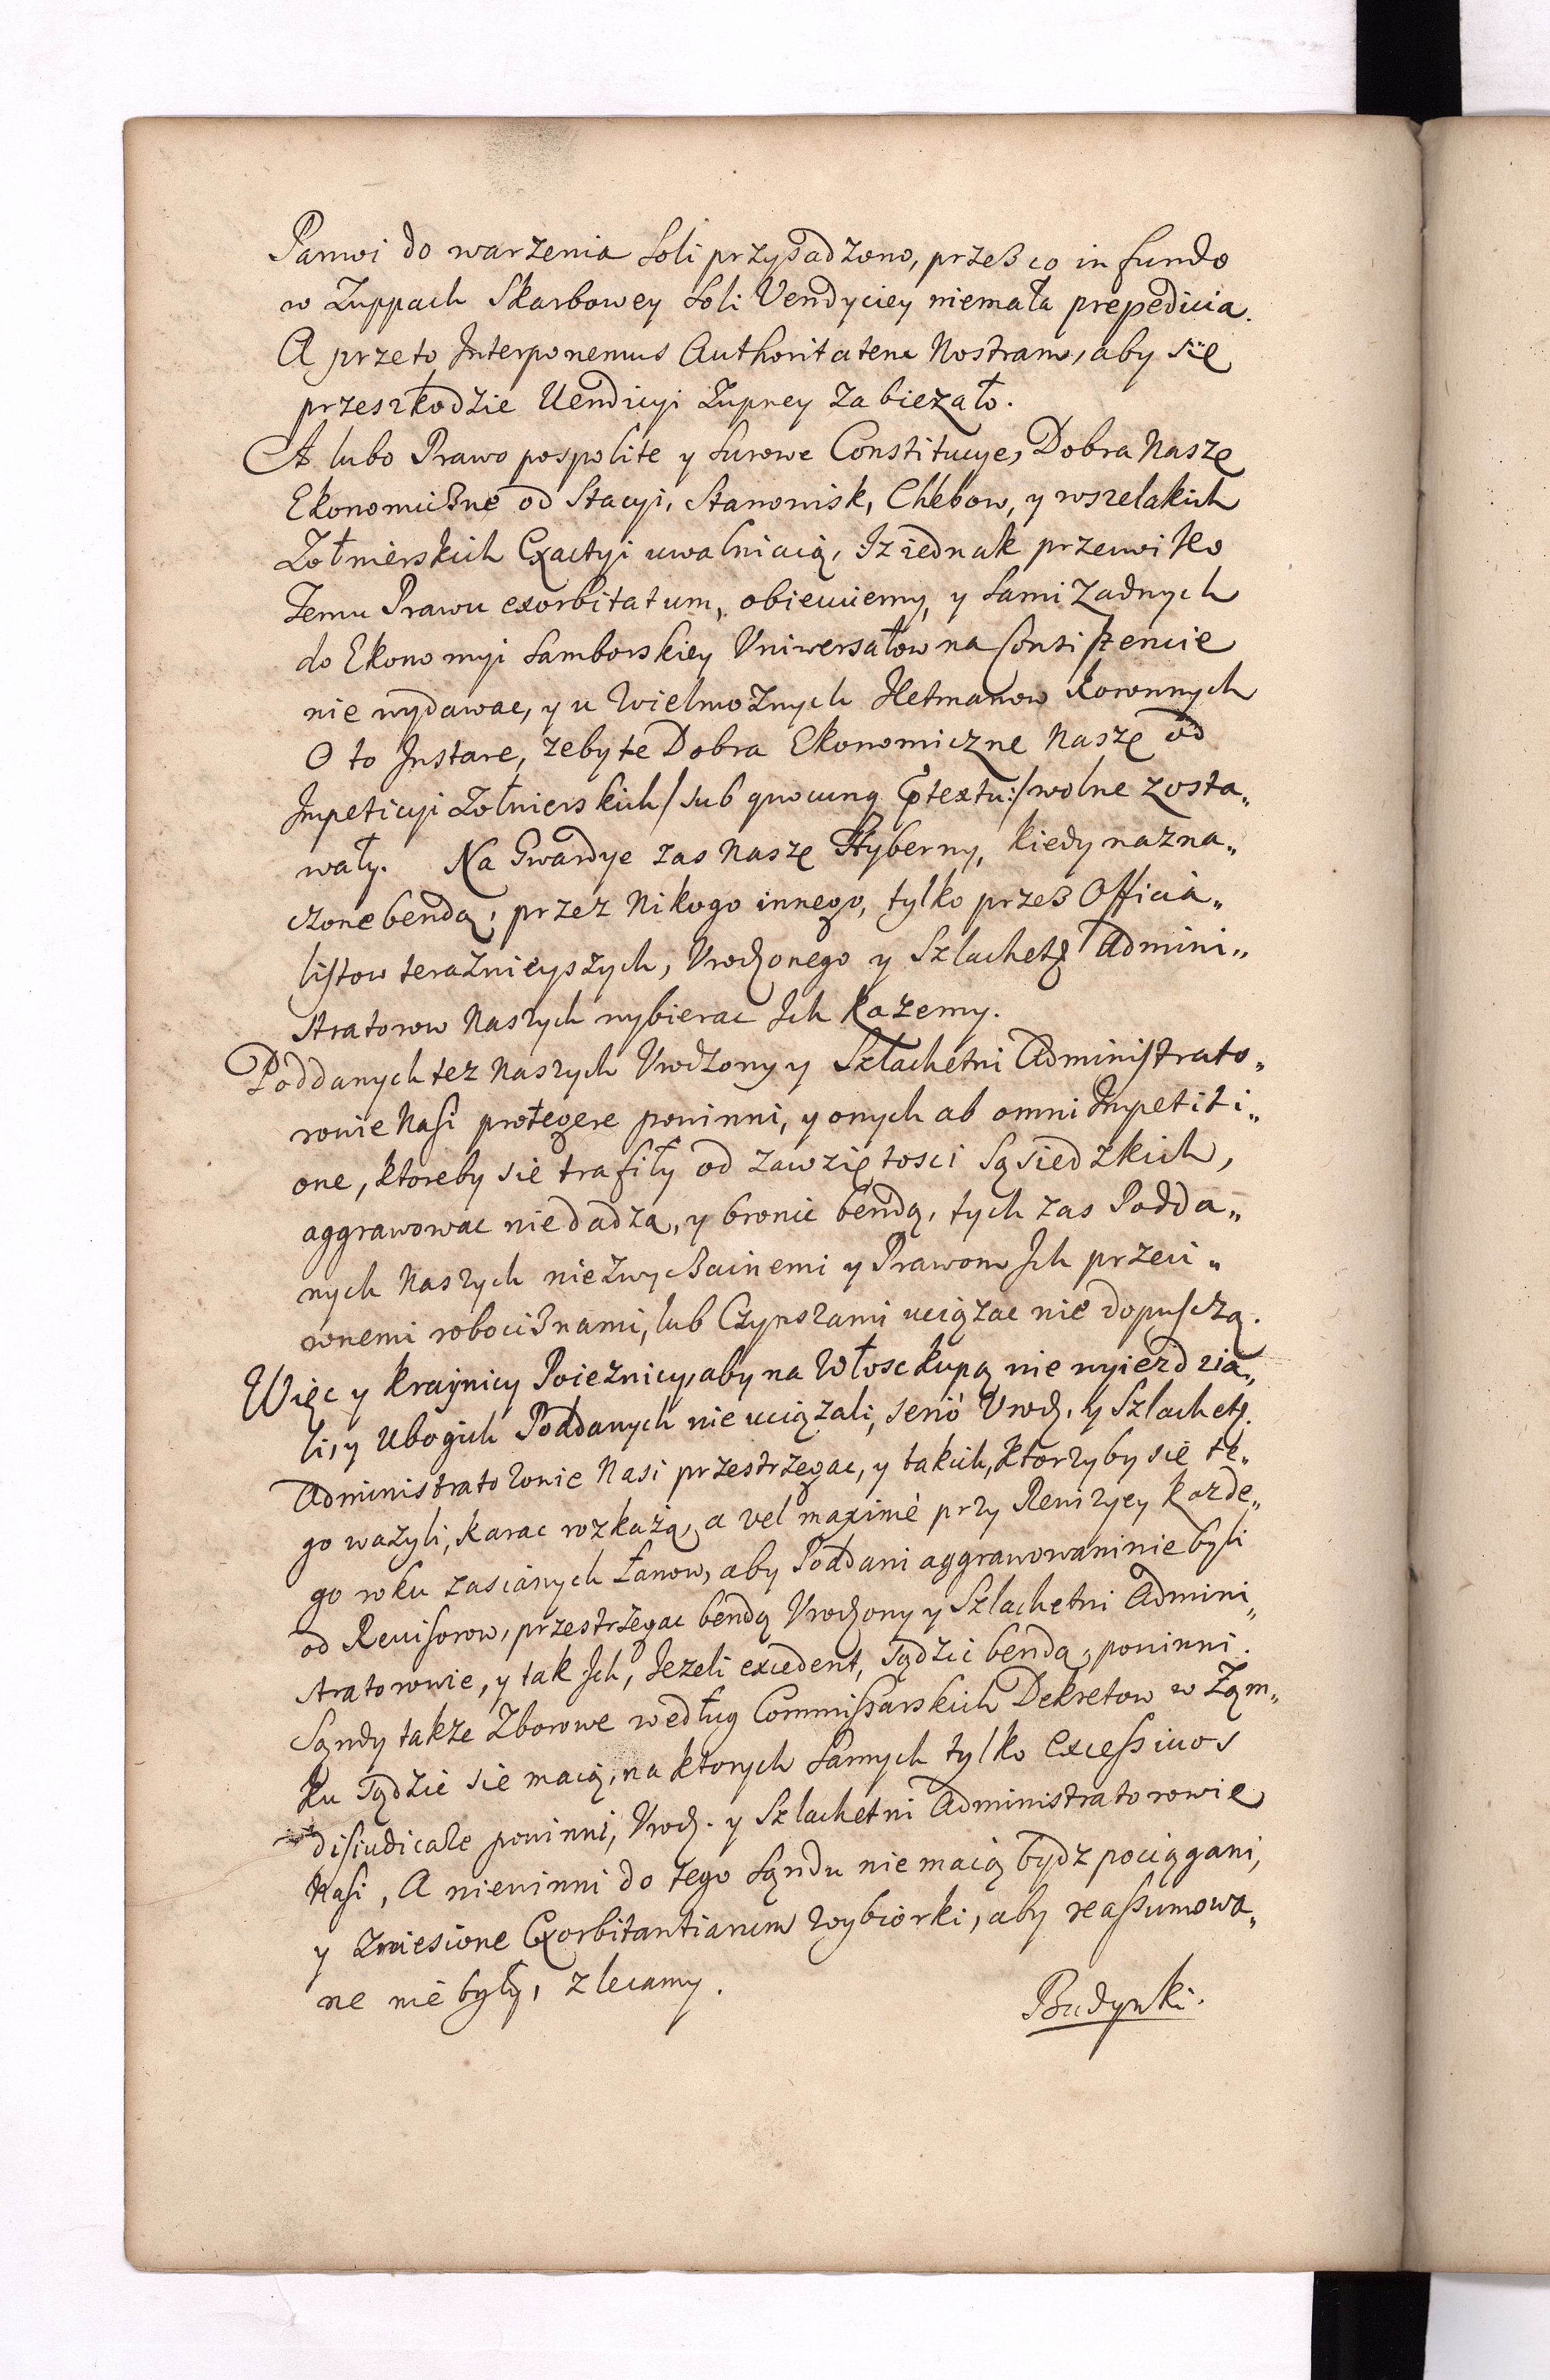 Panwi do warzenia Soli przysadzono, przeß co in fundo
w Zuppach Skarbowey Soli Vendyciey niemała prepedicia.
A przeto Interponemus Authoritatem Nostram, aby się
przeszkodzie Uendicyi Zupney zabiezało.
A lubo Prawo pospolite y surowe Constitucye, Dobra Nasze
Ekonomicßne od Stacyi, Stanowisk, Chlebow, y wszelakich
Zołnierskich Exactyi uwalniaią, Iz iednak przeciwko
Temu Prawu exorbitatum, obiecuiemy, y sami Zadnych
do Ekonomyi Samborskiey Vniwersałow na Consistencie
nie wydawac, y u Wielmoznych Hetmanow Koronnych
O to Instare, zeby te Dobra Ekonomiczne Nasze od
Impeticyi Zołnierskich/ sub quocunq ptextu:/ wolne zosta„
wały. Na Gwardye zas Nasze Hyberny, kiedy nazna„
czone bendą, przez Nikogo innego, tylko przeß Officia„
listow teraznieyszych, Vrodzonego y Szlachetß Admini„
stratorow Naszych wybierac Ich Kazemy.
Poddanych tez Naszych Vrodzony y Szlachetni Administrato„
rowie Nasi protegere powinni, y onych ab omni Impetiti„
one, ktoreby się trafiły od Zawziętosci Sąsiedzkich,
aggrawowac niedadzą, y bronic bendą, tych zas Podda„
nych Naszych niezwycßainemi y Prawom Ich przeci„
wnemi robocißnami, lub Czynszami uciązac nie dopusczą.
Więc y Kraynicy Poieznicy, aby na Włosc kupą nie wyiezdzia„
li, y Ubogich Poddanych nie uciązali, serio Vrodz. y Szlachetß
Administratorowie Nasi przestrzegac, y takich, ktorzyby się te„
go wazyli, karac rozkażą, a vel maximè przy Rewizyey kozde„
go roku zasianych Łanow, aby Poddani aggrawowani nie byli
od Reuisorow, przestrzegac bendą Vrodzony y Szlachetni Admini„
stratorowie, y tak Ich, Iezeli excedent, sądzić bendą powinni.
Sąndy takze Zborowe według Commissarskich Dekretow w Ząm„
ku sądzic się maią, na ktorych samych tylko excessiuos
disiudicare powinni, Vrodz. y Szlachetni Administratorowie
Nasi, A niewinni do tego Sąndu nie maią bydz pociągani,
y Zniesione Exorbitantiarum Wybiorki, aby reassumowa„
ne nie były, zlecamy.
Budynki.